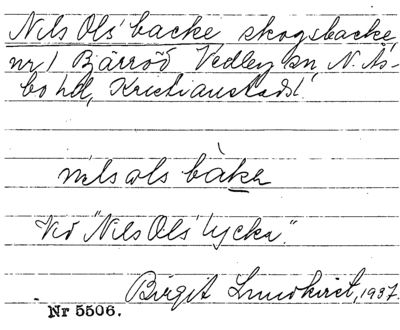 Nils Ols' backe skogsbacke
nr 1 Bjärröd Vedby sn N. Ås-
bo hd, Kristianstads l.
nils ols bàkə
Vid "Nils Ols' lycka".
Birgit Lundkvist, 1937.
Nr 5506.